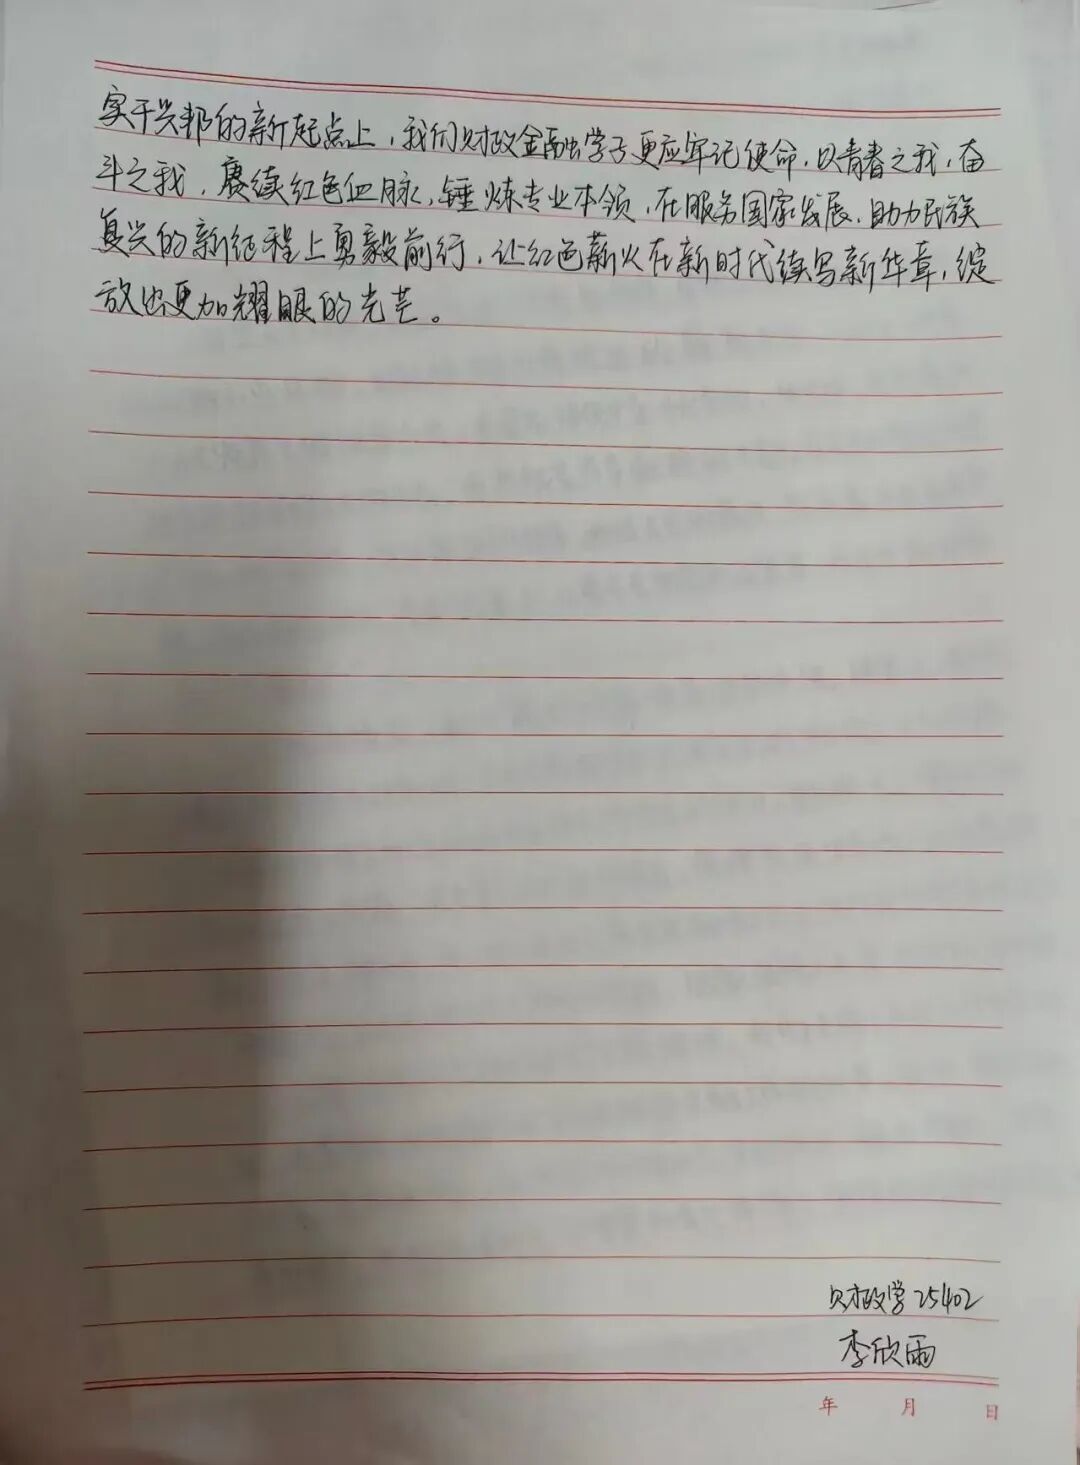 实干兴邦的新起点上，我们财政金融学子更应牢记使命，以青春之我，奋
斗之我，赓续红色血脉，锤炼专业本领，在服务国家发展，助力民族
复兴的新征程上勇毅前行，让红色薪火在新时代续写新华章，绽
放出更加耀眼的光芒。
财政学25402
李欣雨
年 月 日